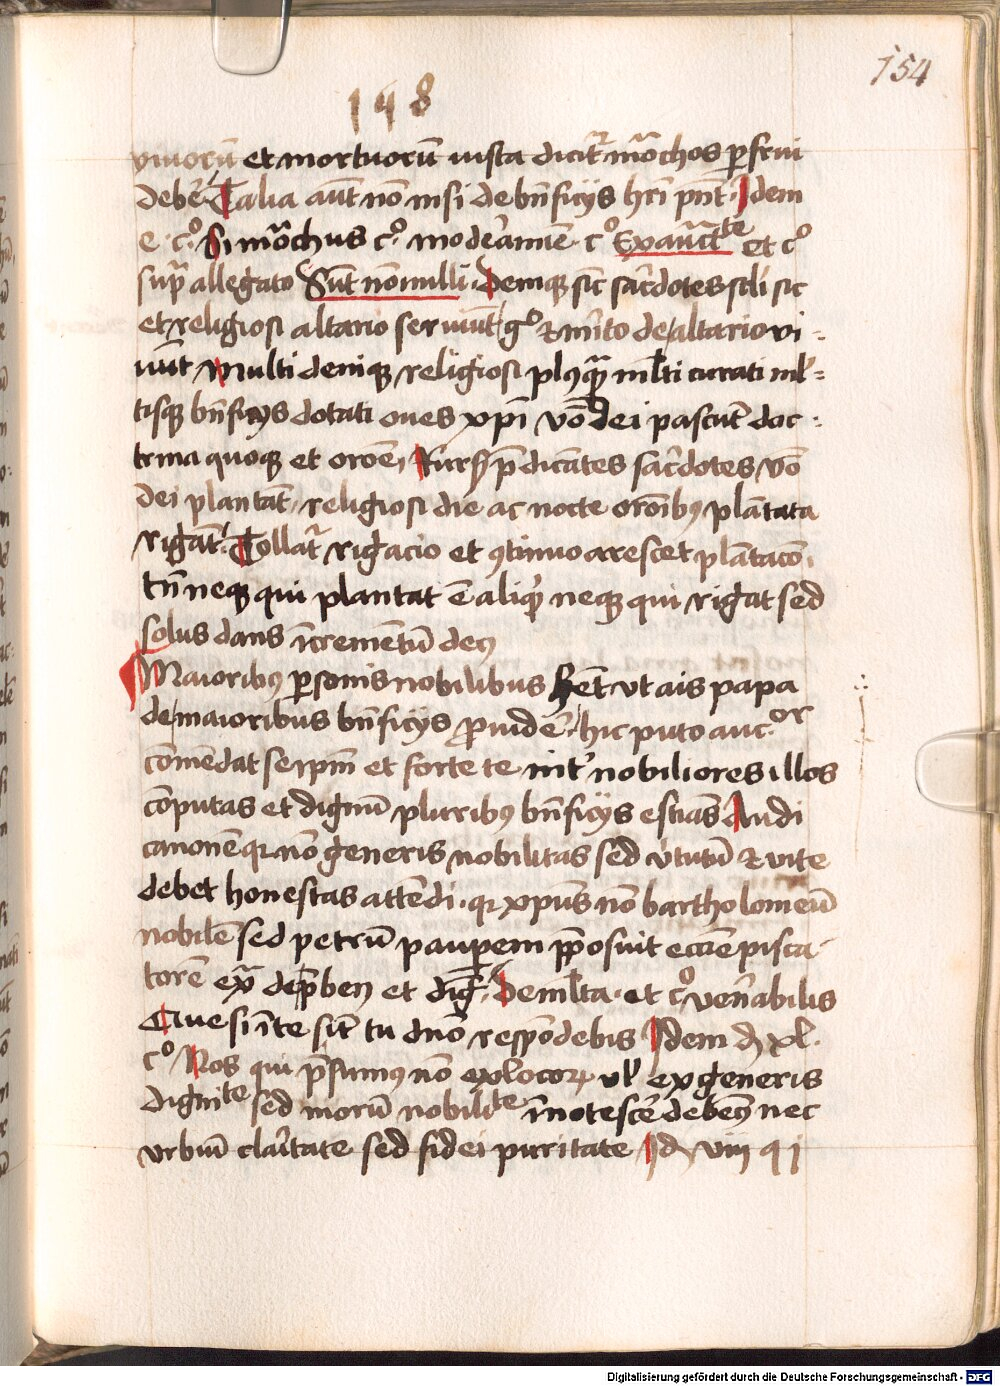 154
148
viuorū et mortuorū iusta dicit᷑ mōchos ꝑfrui
debē Talia aūt nō nisi de bn̄ficijs hr̄i pn̄t · Idem
e · c° · Si mōchus c° · mode᷑amīe · c° Ex auc̄tte et c°
sup̄ allegato Sūt nōnulli · Demqꝫ sic̄ sac̄dotes scl̄i sic
et religiosi altario seruiūt g° & m̄ito de altario vi-
uūt Multi deniqꝫ religiosi plꝰqᷓꝫ ml̄ti curati ml̄-
tisqꝫ bn̄ficijs dotati oues xp̄i v̄o dei pascūt doc-
trina quoqꝫ et oroē, Rursꝰ p̄dicātes sac̄dotes v̄o
dei plantāt, religiosi die ac nocte orōibꝰ plātata
rigāt · Tollat᷑ rigacio et ꝯtinuo arescet plātacō,
tn̄ neqꝫ qui plantat ē aliqͥd neqꝫ qui rigat sed
solus dans īcremētū deꝰ
Maioribꝰ ꝑsonis nobilibus Hēt vt ais papa
de maioribus bn̄ficijs ꝓuidē, hic puto auc.or
cōmēdat seip̄m et forte te int᷑ nobiliores illos
cōputas et dignū pluribꝰ bn̄ficijs estīās Audi
canonē qꝛ nō generis nobilitas sed v᷑tutū & vite
debet honestas attēdi · qꝛ xp̄us nō bartholomeū
nobilē sed petrū pauꝑem p̄posuit ecc̄ie pisca-
torē exᷓ de p̄ben et dig̅, De ml̄ta · et c° ven᷑abilis
Ciue si īte sit᷑ tu dn̄o respōdebis Idem di xl ·
c° Nos qui p̄sumꝰ nō ex locoꝝ vl̓ ex generis
dignite sed morū nobilite īnotesc᷑e debemꝰ nec
vrbiū cla᷑itate sed fidei puritate Id viij q j
Digitalisierung gefördert durch die Deutsche Forschungsgemeinschaft - DFG